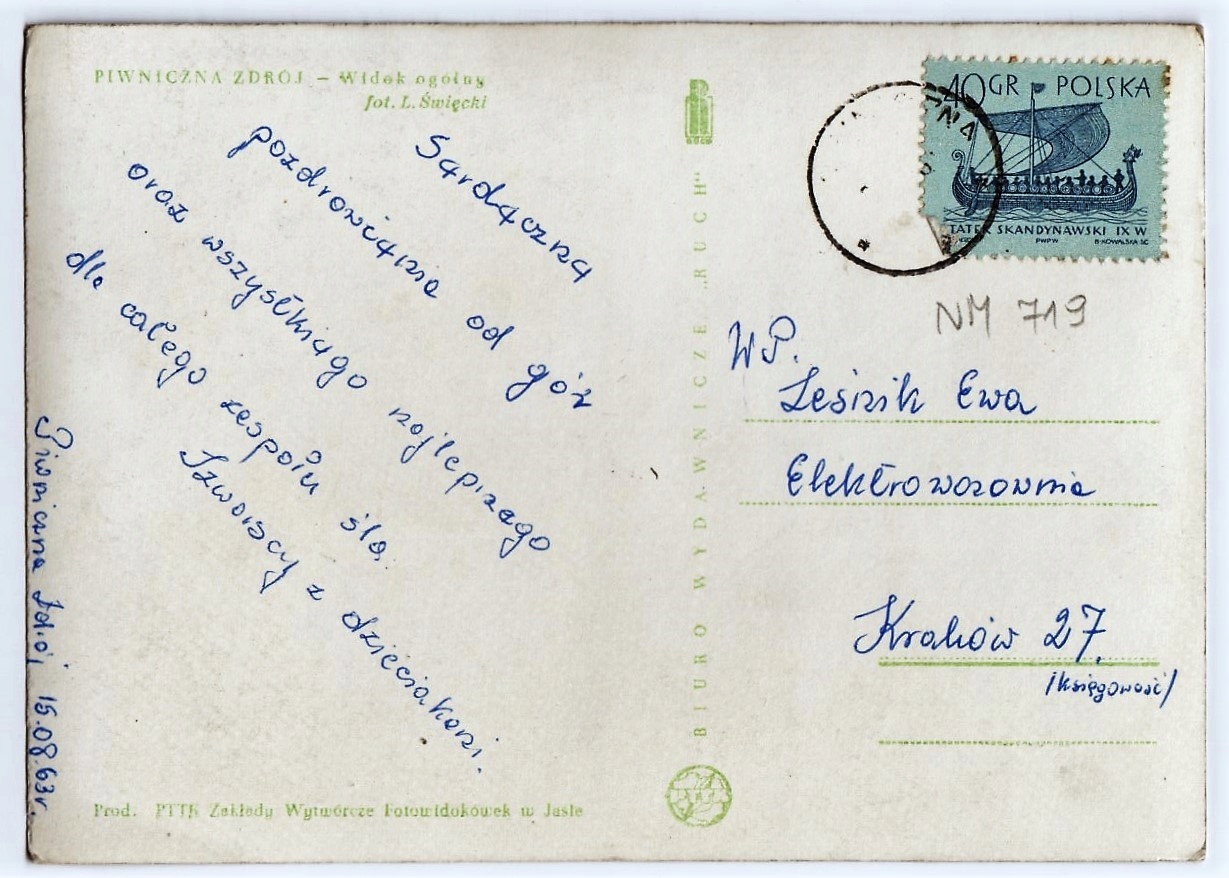 PIWNICZNA ZDRÓJ — Widok ogólny
fot. L. Święcki
Serdeczne
pozdrowienia od gór
oraz wszystkiego najlepszego
dla całego zespołu ślą
z dzieciakami.
Piwniczna Zdrój 15.08.63r.
Prod. PTTK Zakłady Wytwórcze Fotowidokówek w Jaśle
BIURO WYDAWNICZE „RUCH"
RUCH
40GR POLSKA
STATEK SKANDYNAWSKI IX W
PWPW B. KOWALSKA SC
NM 719
WP.
Leśnik Ewa
Elektrowozownia
Kraków 27.
/księgowość/